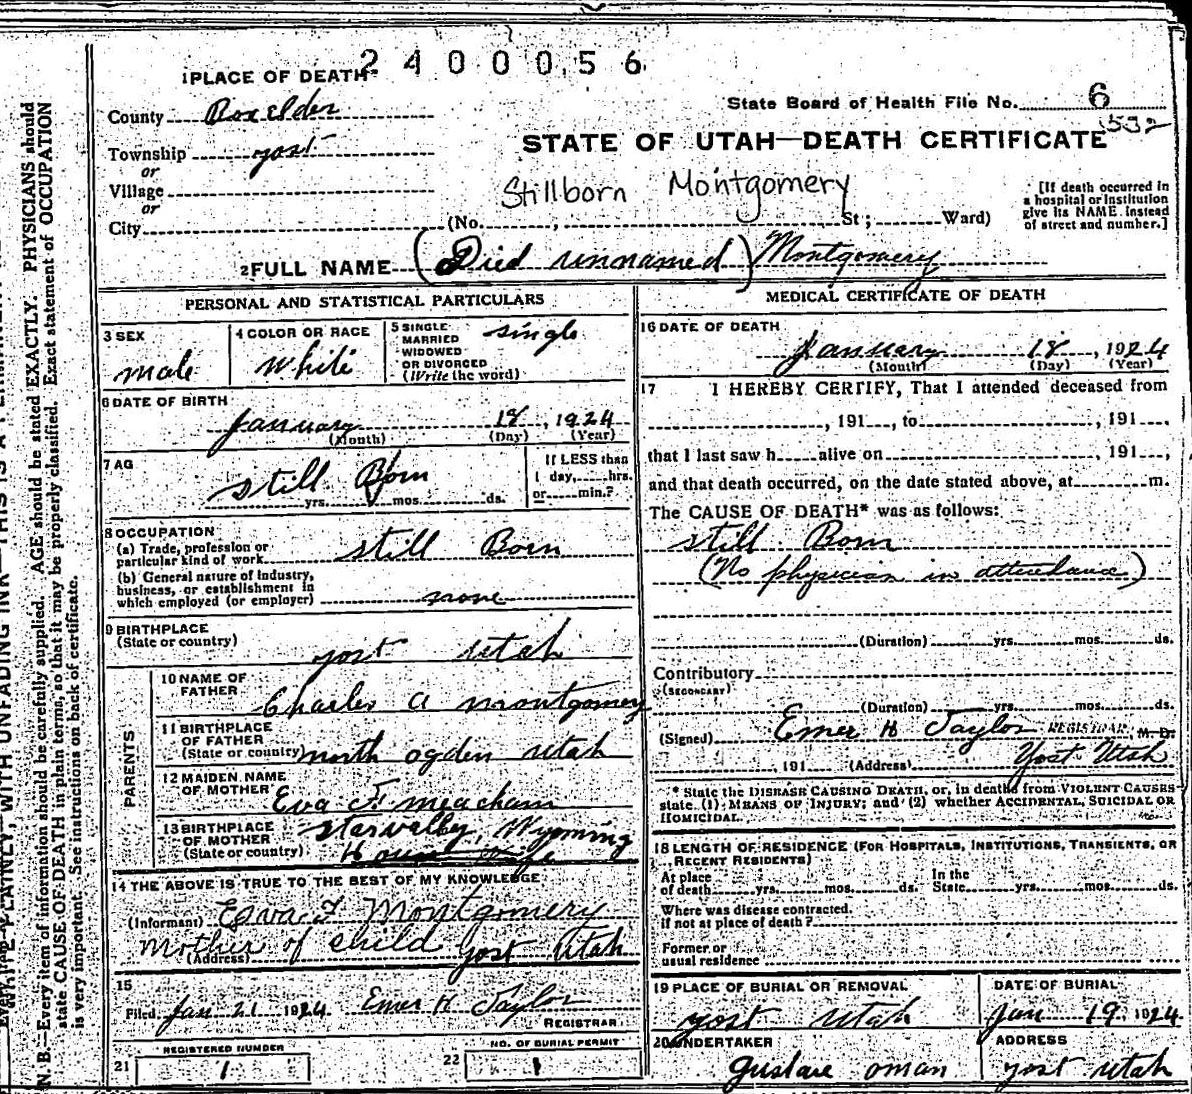 2400056
1 PLACE OF DEATH
County Boxelder
State Board of Health File No. 6
532
Township yost
or
STATE OF UTAH—DEATH CERTIFICATE
Village
or
Stillborn Montgomery
City (No. , St ; Ward)
[If death occurred in
a hospital or institution
give its NAME instead
of street and number.]
2 FULL NAME (Died unnamed) Montgomery
PERSONAL AND STATISTICAL PARTICULARS
3 SEX
male
4 COLOR OR RACE
White
5 SINGLE
MARRIED
WIDOWED
OR DIVORCED
(Write the word)
single
6 DATE OF BIRTH
January 18, 1924
(Month) (Day) (Year)
7 AG
still Born
yrs. mos. ds.
If LESS than
1 day, hrs.
or min.?
8 OCCUPATION
(a) Trade, profession or
particular kind of work still Born
(b) General nature of industry,
business, or establishment in
which employed (or employer) none
9 BIRTHPLACE
(State or country)
yost utah
PARENTS
10 NAME OF
FATHER
Charles a montgomery
11 BIRTHPLACE
OF FATHER
(State or country) north ogden utah
12 MAIDEN NAME
OF MOTHER
Eva F meacham
13 BIRTHPLACE
OF MOTHER
(State or country)
starvalley, Wyoming
House wife
14 THE ABOVE IS TRUE TO THE BEST OF MY KNOWLEDGE
(Informant) Eva F Montgomery
mother of child yost utah
(Address)
15
Filed Jan 21 1924 Emer H Taylor
REGISTRAR
REGISTERED NUMBER
21 1
NO. OF BURIAL PERMIT
22 1
MEDICAL CERTIFICATE OF DEATH
16 DATE OF DEATH
January 18, 1924
(Month) (Day) (Year)
17 I HEREBY CERTIFY, That I attended deceased from
, 191 , to , 191 ,
that I last saw h alive on , 191 ,
and that death occurred, on the date stated above, at m.
The CAUSE OF DEATH* was as follows:
still Born
(No physician in attendance)
(Duration) yrs. mos. ds.
Contributory
(SECONDARY)
(Duration) yrs. mos. ds.
(Signed) Emer H Taylor REGISTRAR, M. D.
, 191 (Address) Yost Utah
* State the DISEASE CAUSING DEATH, or, in deaths from VIOLENT CAUSES
state (1) MEANS OF INJURY; and (2) whether ACCIDENTAL, SUICIDAL OR
HOMICIDAL.
18 LENGTH OF RESIDENCE (FOR HOSPITALS, INSTITUTIONS, TRANSIENTS, OR
RECENT RESIDENTS)
At place
of death yrs. mos. ds.
In the
State yrs. mos. ds.
Where was disease contracted.
if not at place of death?
Former or
usual residence
19 PLACE OF BURIAL OR REMOVAL
yost utah
DATE OF BURIAL
Jan 19, 1924
20 UNDERTAKER
gustave oman
ADDRESS
yost utah
WRITE PLAINLY, WITH UNFADING INK—THIS IS A PERMANENT
N. B.—Every item of information should be carefully supplied. AGE should be stated EXACTLY. PHYSICIANS should
state CAUSE OF DEATH in plain terms, so that it may be properly classified. Exact statement of OCCUPATION
is very important. See instructions on back of certificate.